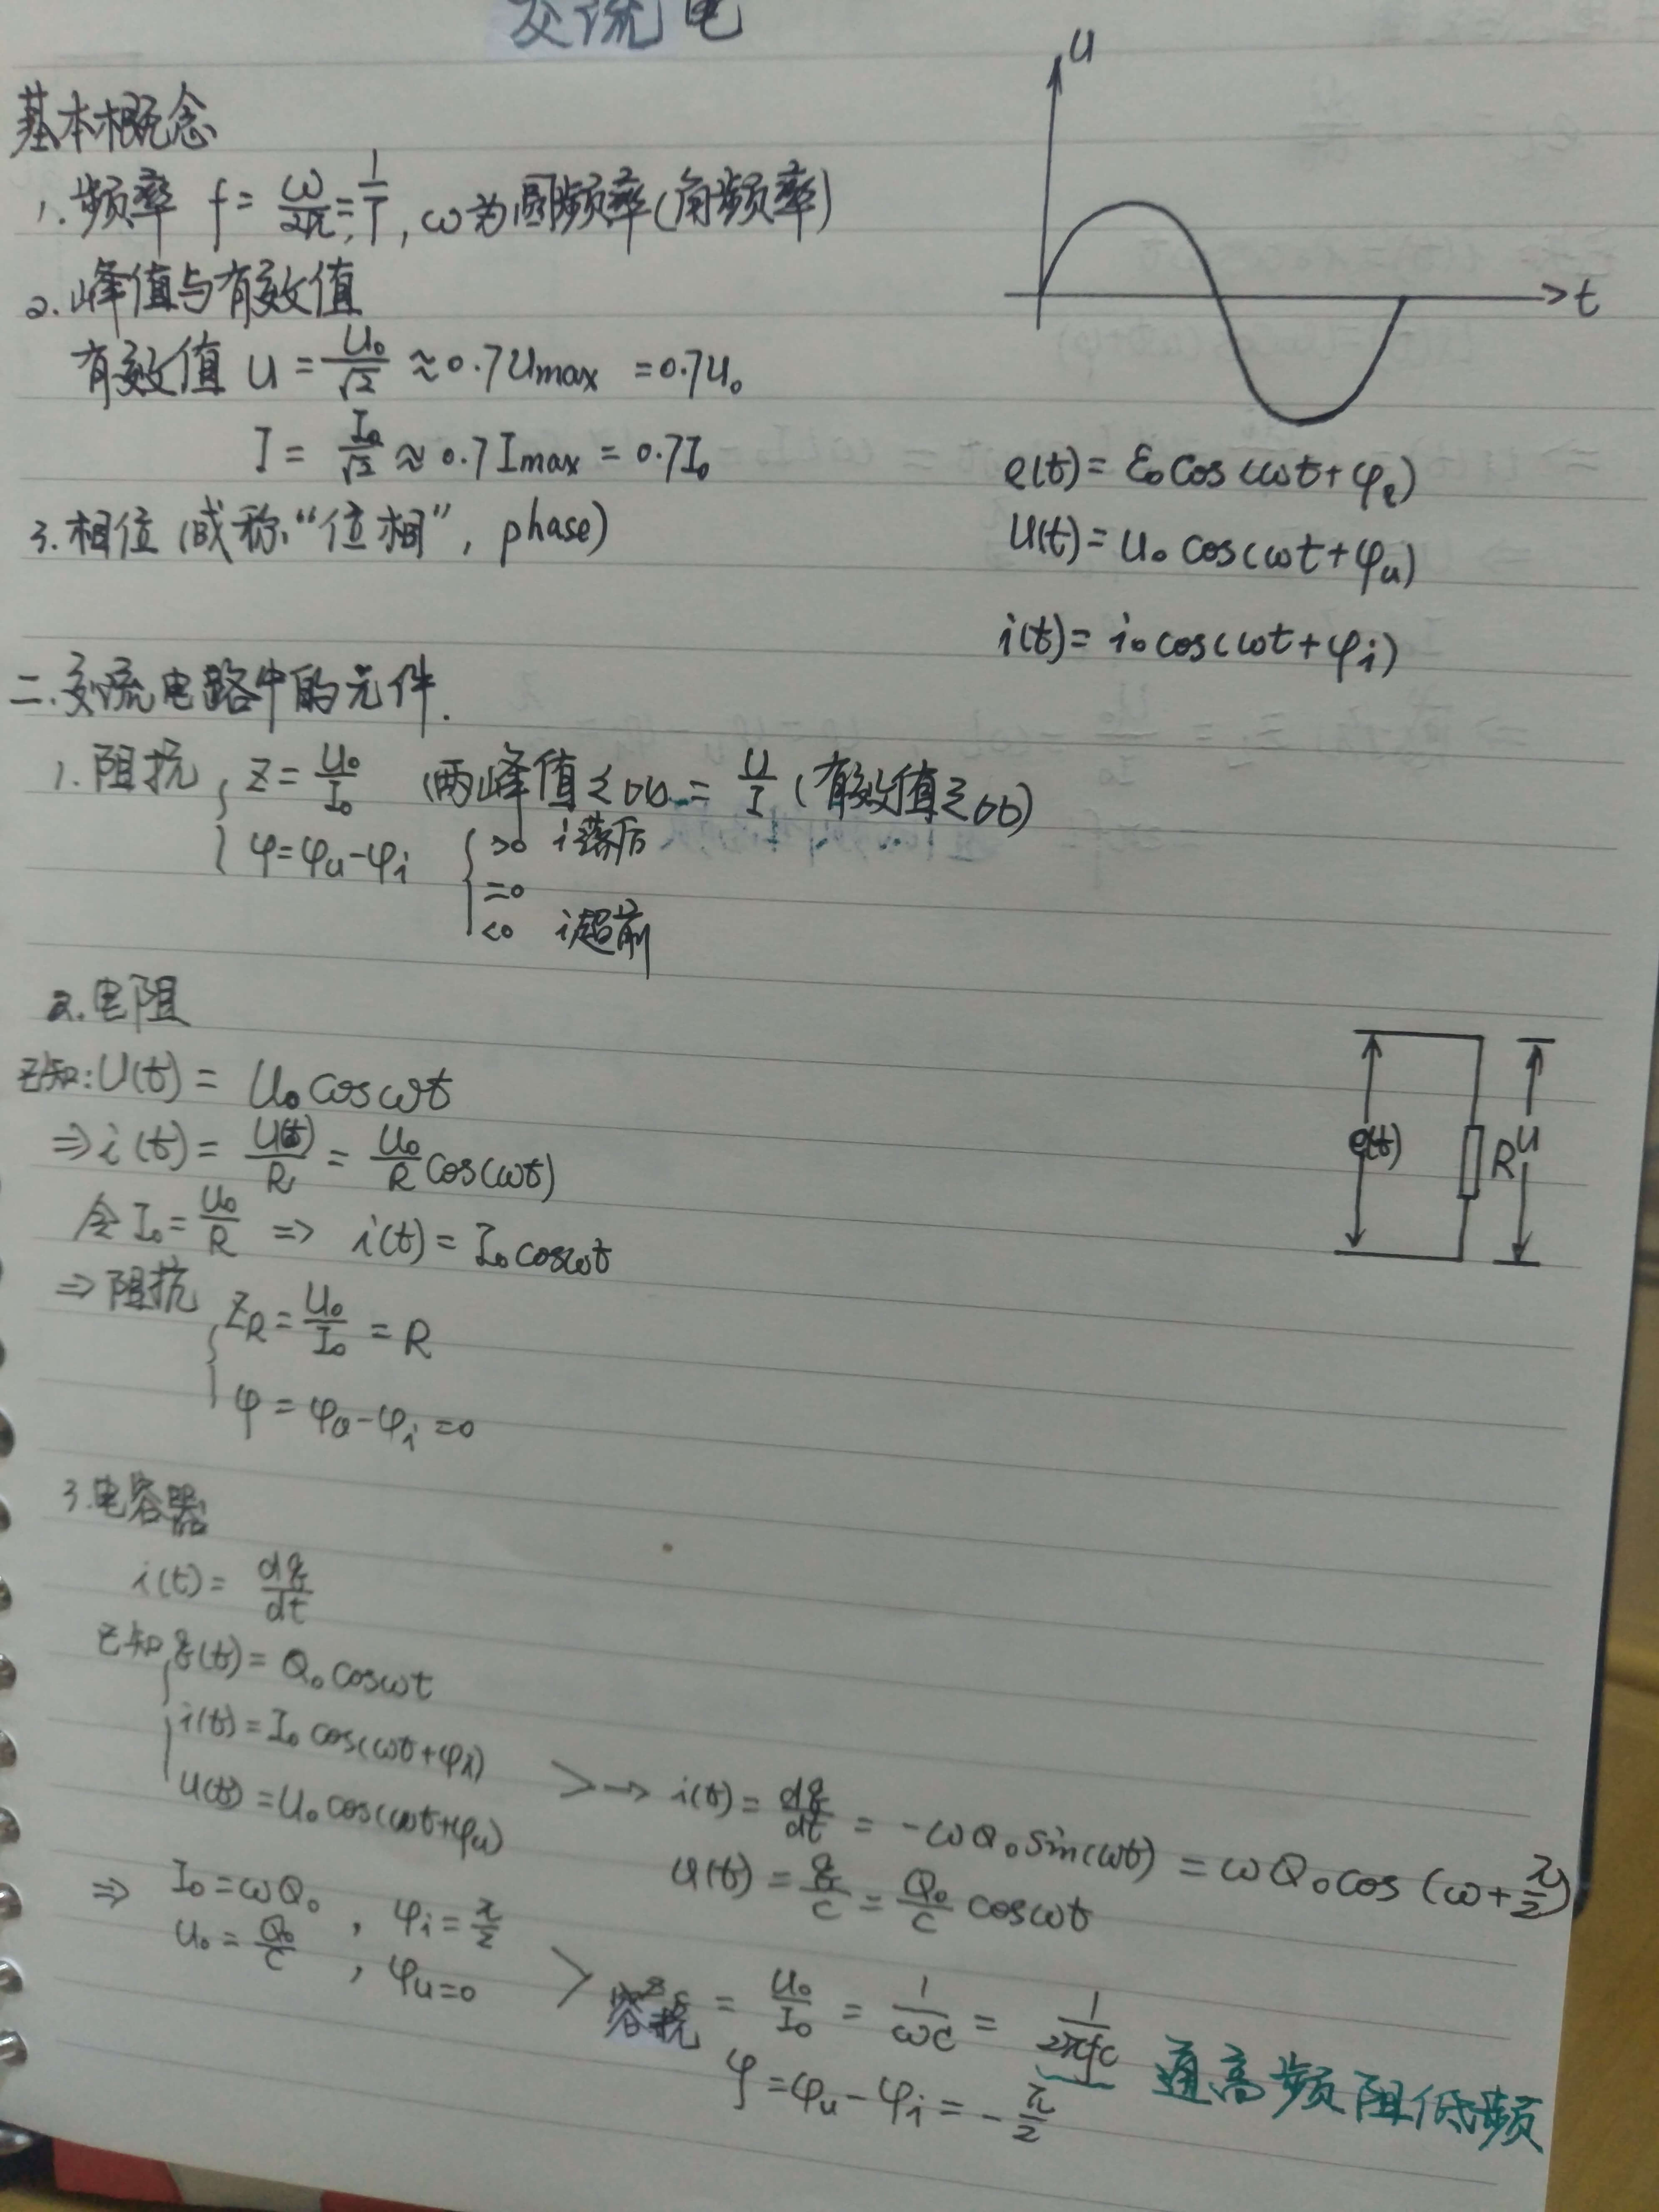 交流电
基本概念
1. 频率 f = ω/2π = 1/T , ω为圆频率(角频率)
2. 峰值与有效值
有效值 U = U₀/√2 ≈ 0.7Umax = 0.7U₀
I = I₀/√2 ≈ 0.7Imax = 0.7I₀
3. 相位 (或称“位相”, phase)
U
t
e(t) = ε₀ cos(ωt+φe)
U(t) = U₀ cos(ωt+φu)
i(t) = i₀ cos(ωt+φi)
二. 交流电路中的元件.
1. 阻抗 { Z = U₀/I₀ (两峰值之比) = U/I (有效值之比)
φ = φu-φi { >0 i落后
=0
<0 i超前
2. 电阻
已知: U(t) = U₀ cosωt
⇒ i(t) = U(t)/R = U₀/R cos(ωt)
令 I₀ = U₀/R ⇒ i(t) = I₀ cosωt
⇒ 阻抗 { Z_R = U₀/I₀ = R
φ = φu-φi = 0
e(t) R U
3. 电容器
i(t) = dq/dt
已知 { q(t) = Q₀ cosωt
i(t) = I₀ cos(ωt+φi)
U(t) = U₀ cos(ωt+φu)
> → i(t) = dq/dt = -ωQ₀ sin(ωt) = ωQ₀ cos(ω+π/2)
U(t) = q/C = Q₀/C cosωt
⇒ I₀ = ωQ₀ , φi = π/2
U₀ = Q₀/C , φu = 0
> 容抗 = U₀/I₀ = 1/ωC = 1/2πfC 通高频阻低频
φ = φu-φi = -π/2